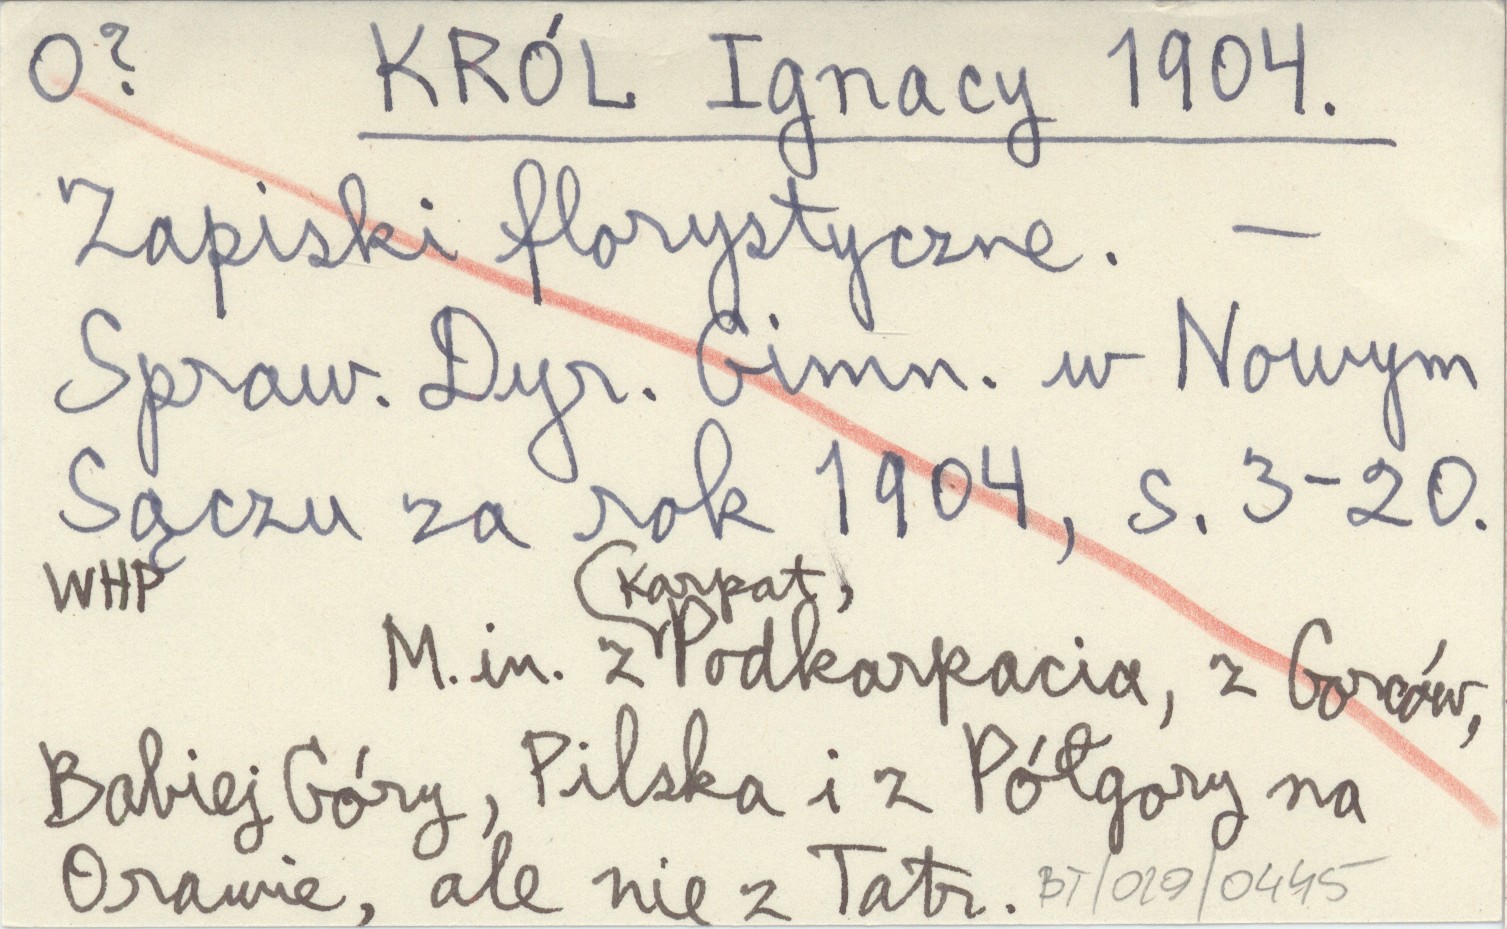 O? KRÓL Ignacy 1904.
Zapiski florystyczne. —
Spraw. Dyr. Gimn. w Nowym
Sączu za rok 1904, s. 3-20.
WHP
Karpat,
M. in. z Podkarpacia, z Gorców,
Babiej Góry, Pilska i z Półgory na
Orawie, ale nie z Tatr. BT/029/0445